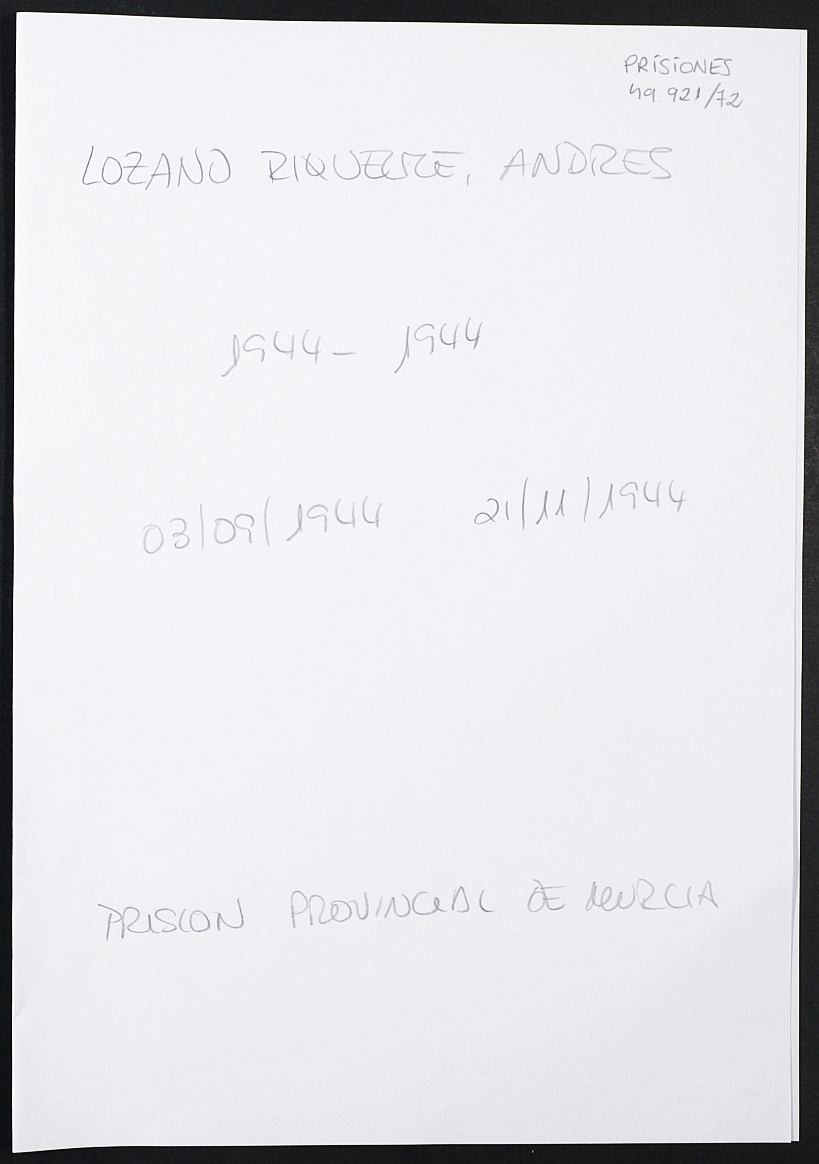 PRISIONES
49.921/72
LOZANO RIQUELME, ANDRES
1944 - 1944
03/09/1944 21/11/1944
PRISION PROVINCIAL DE MURCIA